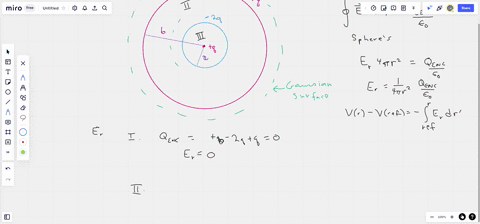 miro
Untitled
Share
II
-2q
III
b
+q
a
Gaussian
surface
∮ E
Q_ENC
ε₀
Sphere's
E_r 4πr² = Q_ENC / ε₀
E_r = 1/4πr² Q_ENC / ε₀
V(r) - V(ref) = - ∫_ref^r E_r dr'
E_r I. Q_ENC = +q - 2q + q = 0
E_r = 0
II.